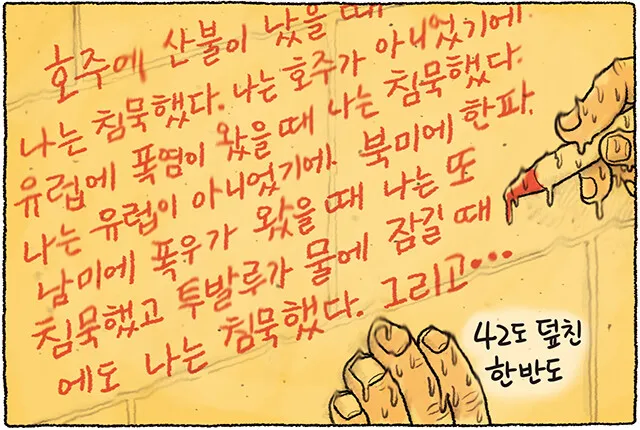 호주에 산불이 났을 때
나는 침묵했다. 나는 호주가 아니었기에.
유럽에 폭염이 왔을 때 나는 침묵했다.
나는 유럽이 아니었기에. 북미에 한파,
남미에 폭우가 왔을 때 나는 또
침묵했고 투발루가 물에 잠길 때
에도 나는 침묵했다. 그리고•••
42도 덮친
한반도